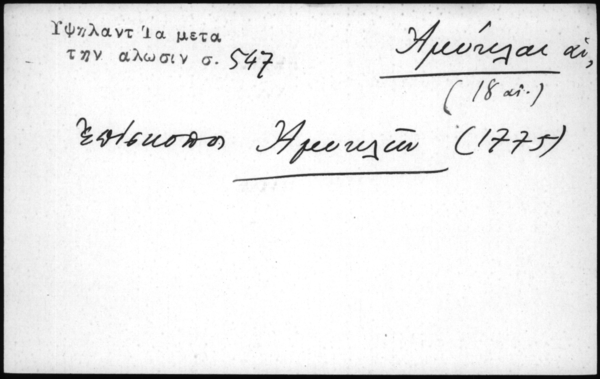 Ὑψηλαντ Ἰα μετα
την αλωσιν σ. 547
Ἀμύκλαι αἱ,
(18 αἰ.)
Ἐπίσκοπος Ἀμυκλῶν (1775)